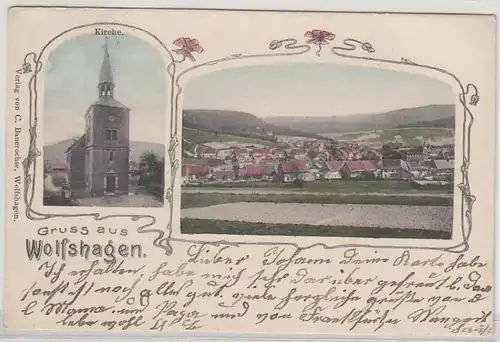 Kirche.
Verlag von C. Bauerochse, Wolfshagen.
Gruss aus
Wolfshagen.
Lieber Johann Deine Karte habe
Ich erhalten, habe mich sehr darüber gefreut
sonst ist noch alles gut, viele herzliche grüße von
Mama, und und von
lebe wohl